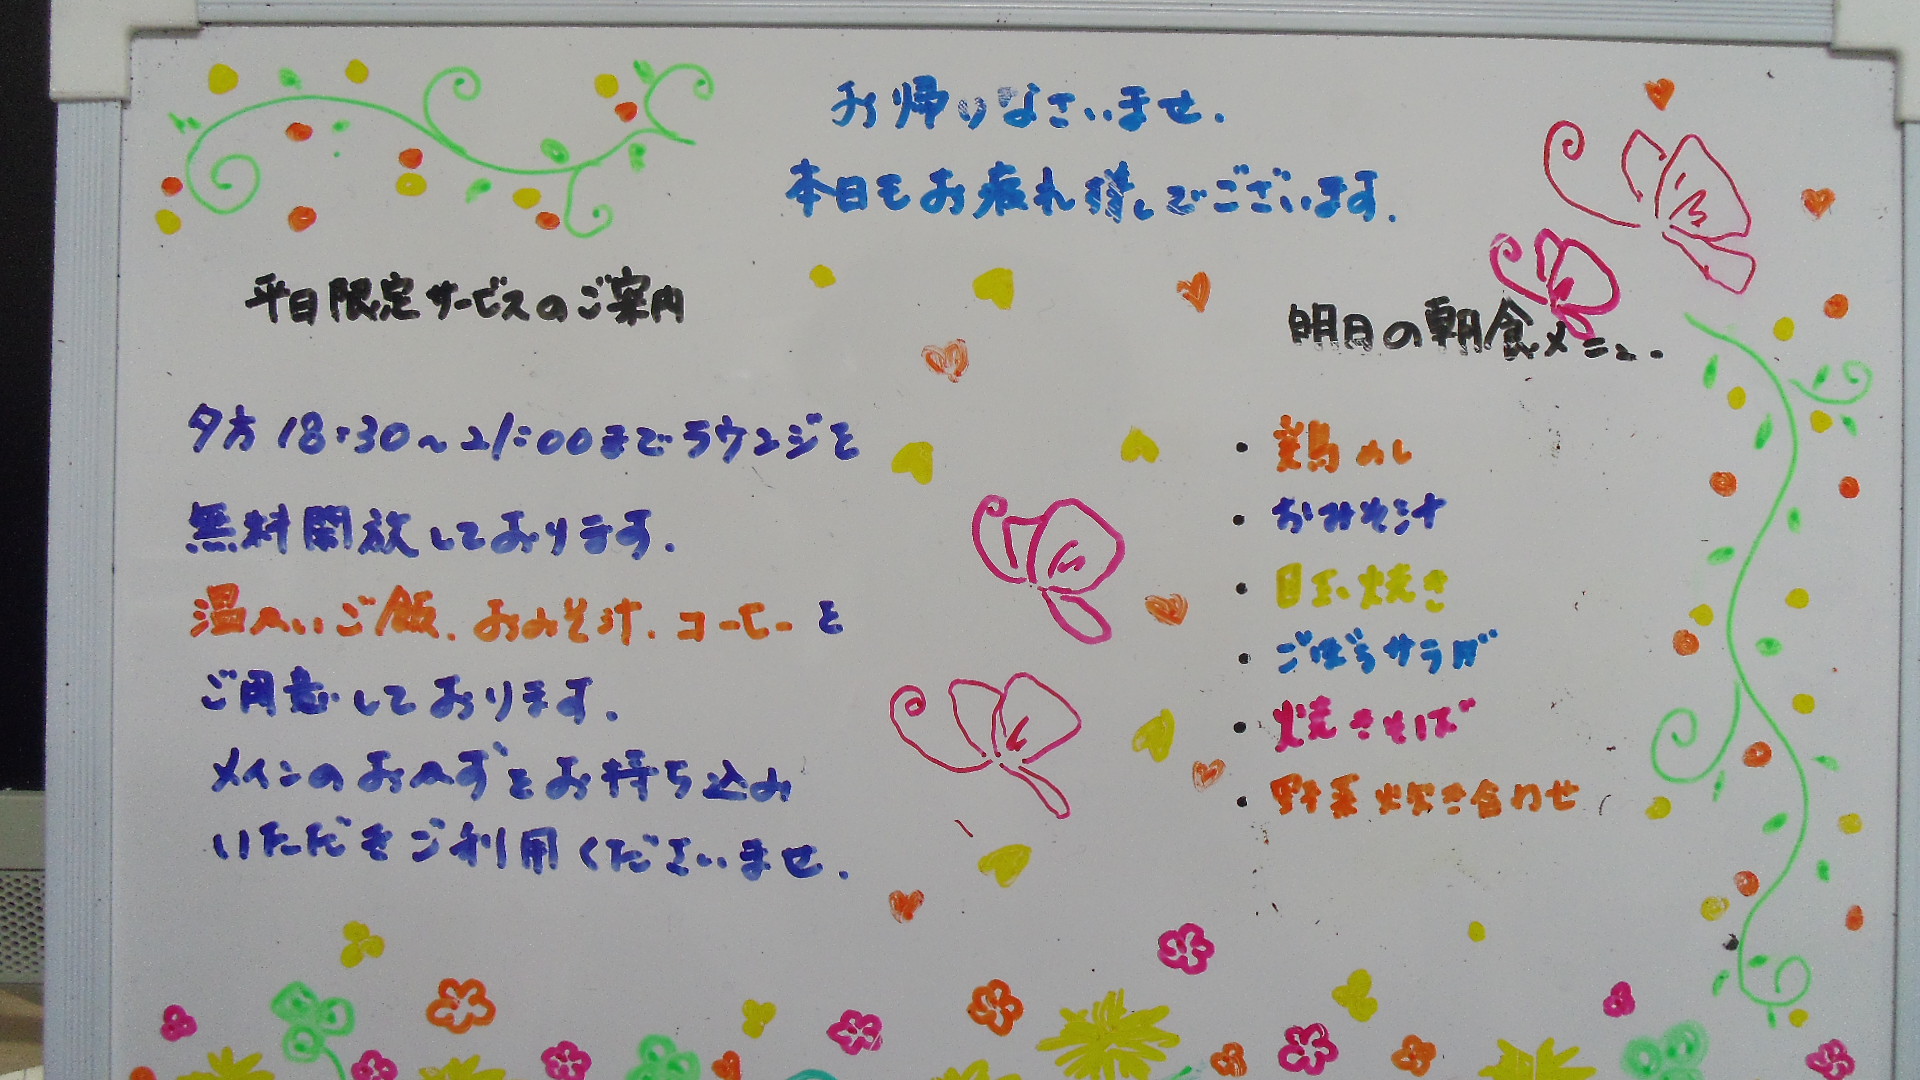 お帰りなさいませ.
本日もお疲れ様でございます.
平日限定サービスのご案内
夕方18:30～21:00までラウンジを
無料開放しております.
温かいご飯.おみそ汁.コーヒーを
ご用意しております.
メインのおかずをお持ち込み
いただきご利用くださいませ.
明日の朝食メニュー.
・鶏めし
・おみそ汁
・目玉焼き
・ごぼうサラダ
・焼きそば
・野菜炊き合わせ